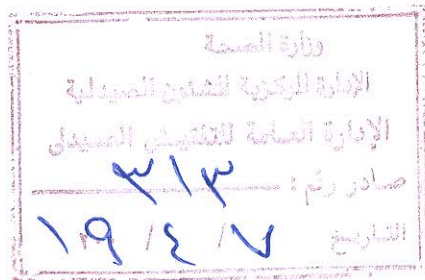 وزارة الصحة
الإدارة المركزية للشئون الصيدلية
الإدارة العامة للتفتيش الصيدلى
صادر رقم : ٣١٣
التاريخ ٧ / ٤ / ١٩